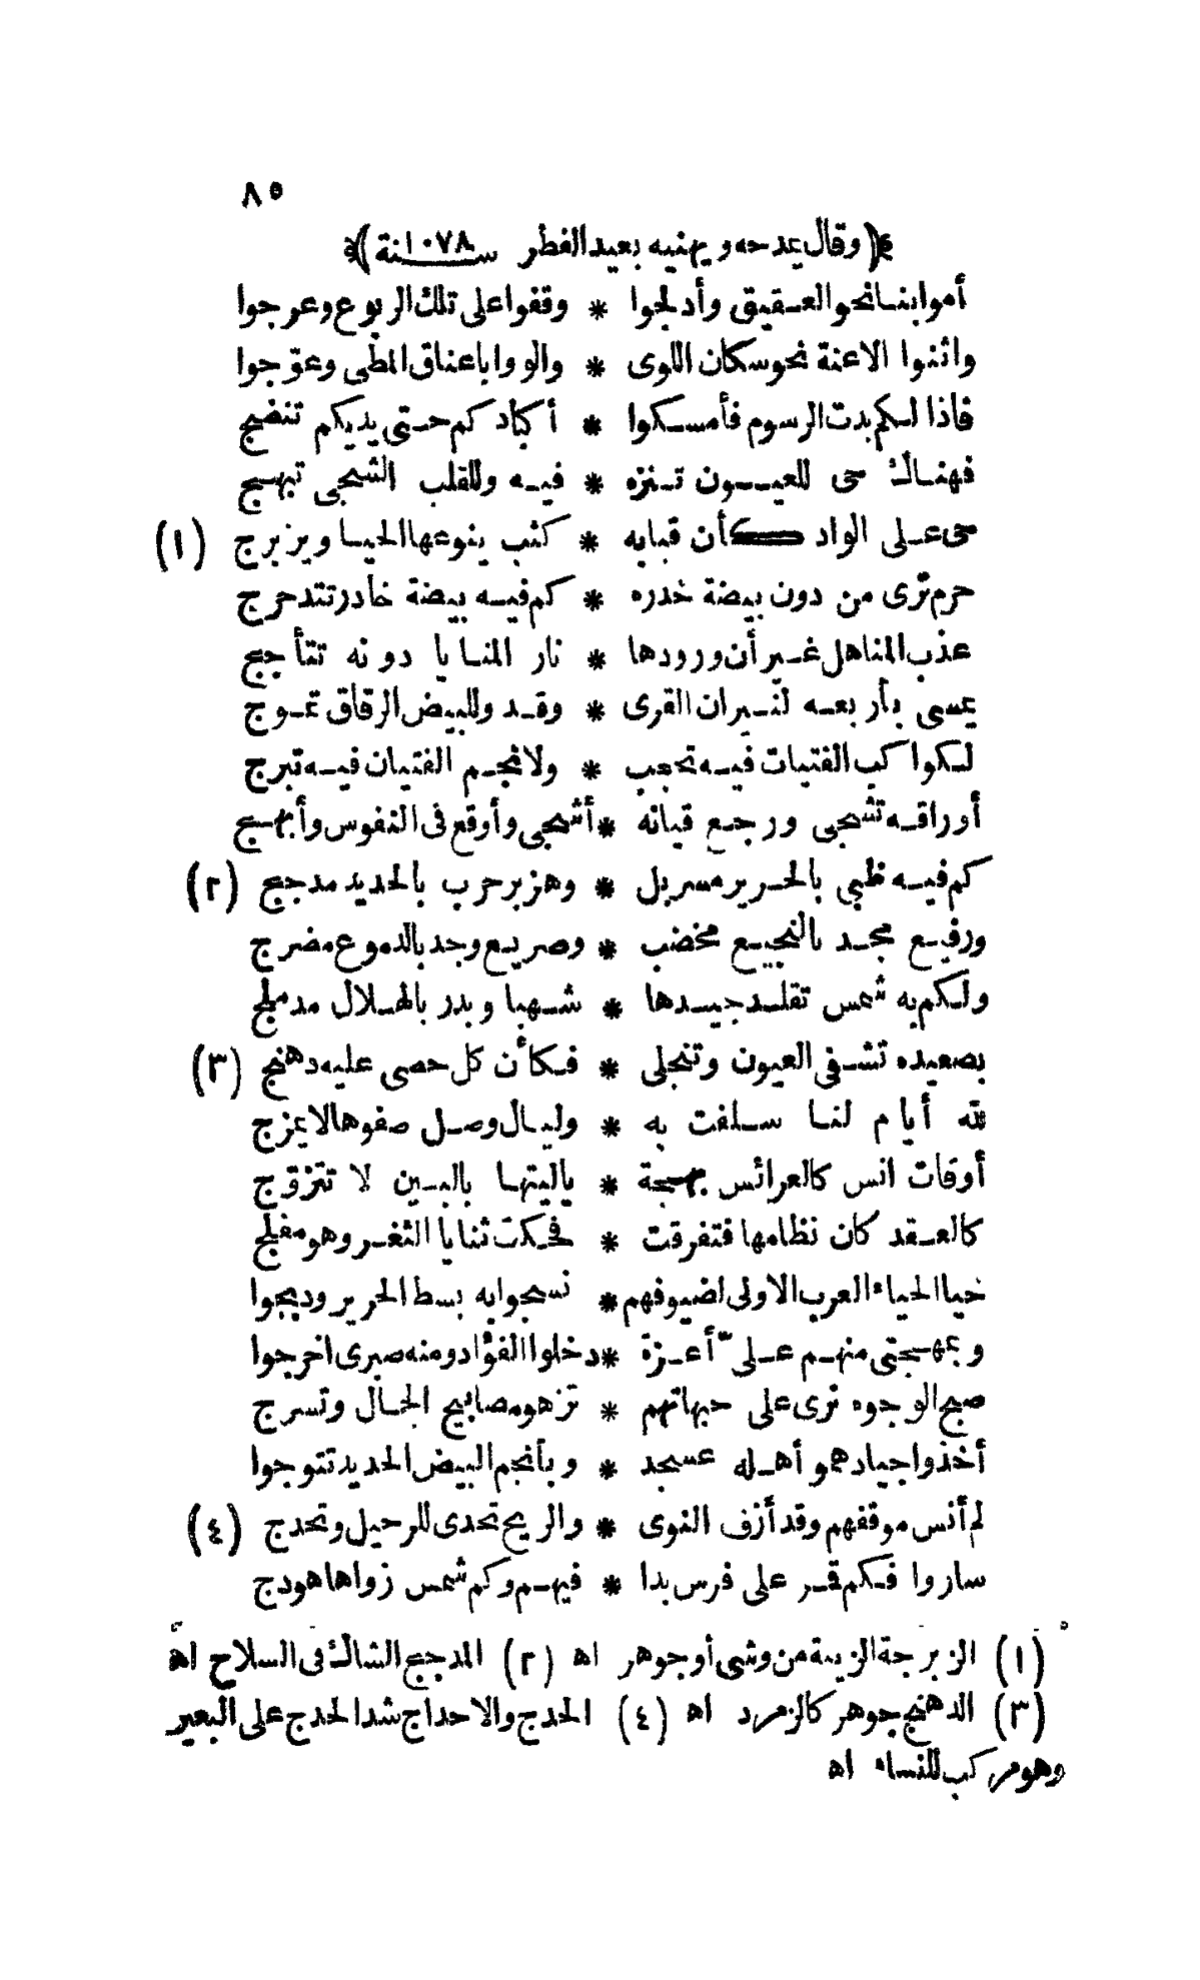 ٨٥
﴿وقال يمدحه ويهنيه بعيد الفطر سنة ١٠٧٨﴾
أموا بنا نحو العقيق وأدلجوا * وقفوا على تلك الربوع وعرجوا
واثنوا الاعنة نحو سكان اللوى * والووا باعناق المطى وعوّجوا
فاذا لكم بدت الرسوم فأمسكوا * أكباد كم حتى يديكم تنضج
فهناك حى للعيون تنزه * فيه وللقلب الشجى تبهج
حى على الواد كأن قبابه * كثب ينوعها الحيا ويزبرج (١)
حرم ترى من دون بيضة خدره * كم فيه بيضة خادر تتدحرج
عذب المناهل غير أن ورودها * نار المنايا دونه تتأجج
يمسى بأربعه لنيران القرى * وقد وللبيض الرقاق تموج
لكواكب الفتيات فيه تحجب * ولانجم الفتيان فيه تبرج
أوراقه تشجى ورجع قيانه * أشجى وأوقع فى النفوس وأبهج
كم فيه ظبى بالحرير مسربل * وهزبر حرب بالحديد مدجج (٢)
ورفيع مجد بالنجيع مخضب * وصريع وجد بالدموع مضرج
ولكم به شمس تقلد جيدها * شهبا وبدر بالهلال مدملج
بصعيده تشفى العيون وتنجلى * فكأن كل حصى عليه دهنج (٣)
لله أيام لنا سلفت به * وليال وصل صفوها لايمزج
أوقات انس كالعرائس بهجة * ياليتها بالبين لا تتزوّج
كالعقد كان نظامها فتفرقت * فحكت ثنايا الثغر وهو مفلج
خيا الحياء العرب الاولى لضيوفهم * نسجوا به بسط الحرير ودبجوا
وبمهجتى منهم على أعزة * دخلوا الفؤاد ومنه صبرى اخرجوا
صبح الوجوه ترى على جبهاتهم * تزهو مصابيح الجمال وتسرج
أخذوا جيادهمو أهله عسجد * وبأنجم البيض الحديد تتوجوا
لم أنس موقفهم وقد أزف النوى * والريح تحدى للرحيل وتحدج (٤)
ساروا فكم قمر على فرس بدا * فيهم وكم شمس زواها هودج
(١) الزبرجة الزينة من وشى أو جوهر اه (٢) المدجج الشاك فى السلاح اه
(٣) الدهنج جوهر كالزمرد اه (٤) الحدج والاحداج شد الحدج على البعير
وهو مركب للنساء اه